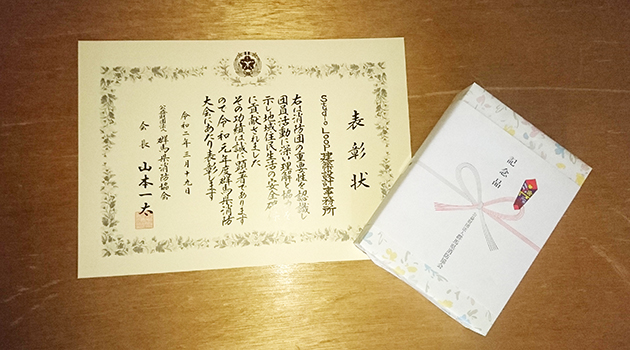 表彰状
Studio Loop 建築設計事務所
右は消防団の重要性を認識し
団員活動に深い理解と協力を
示し地域住民生活の安全確保
に貢献されました
その功績は誠に顕著であります
のて令和元年度群馬県消防
大会にあたり表彰します
令和二年三月十九日
公益財団法人 群馬県消防協会
会長 山本一太
記念品
公益財団法人群馬県消防協会